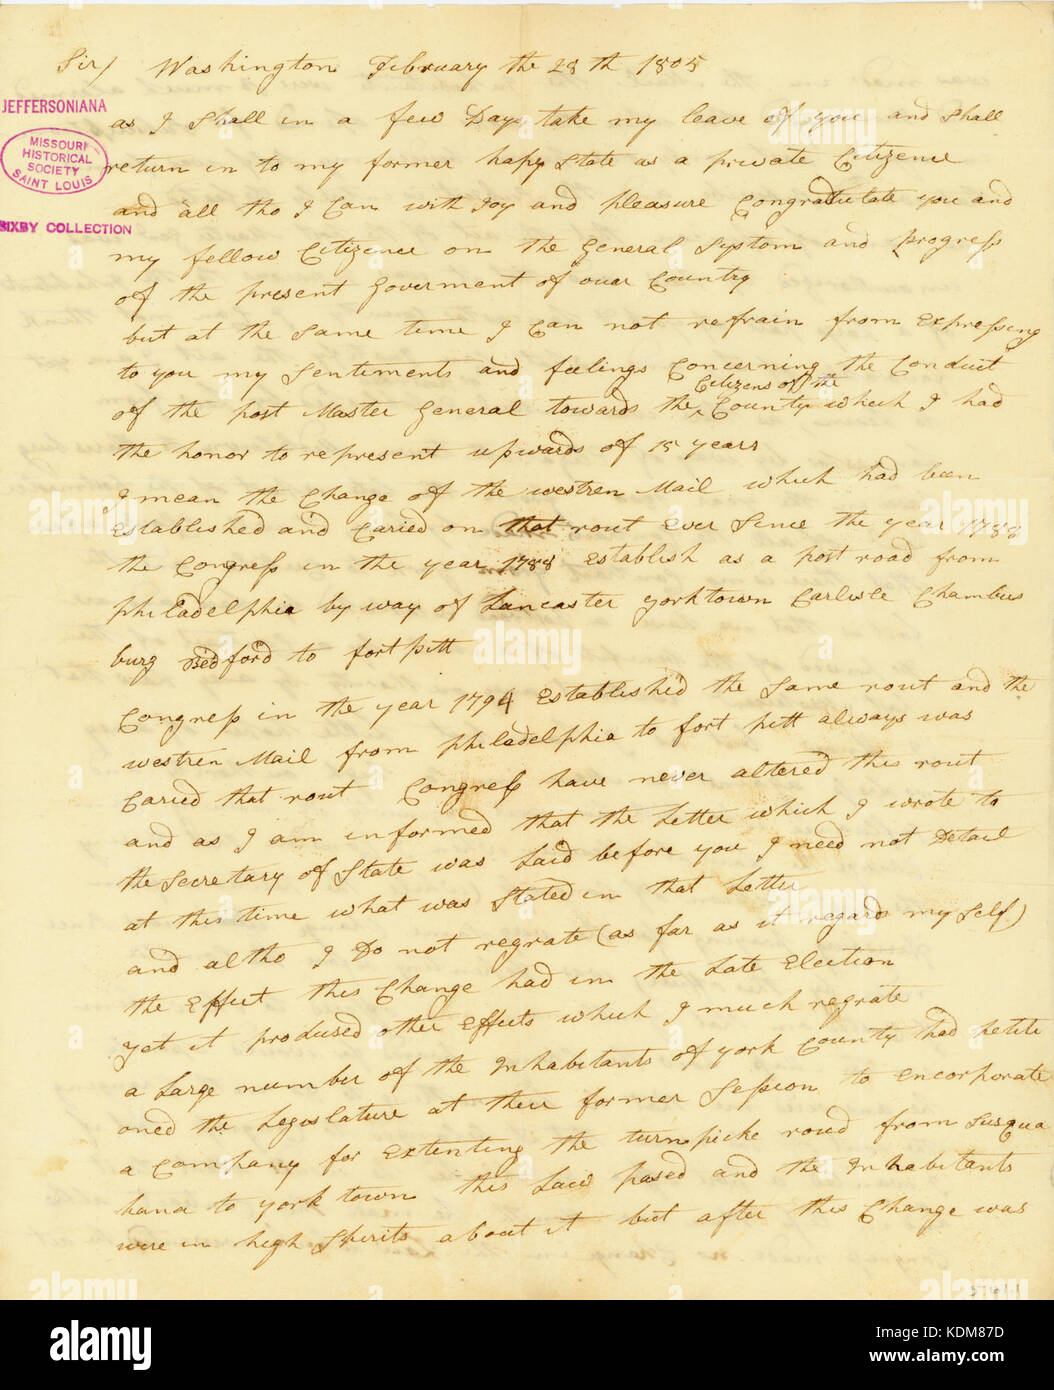 Sir/ Washington February the 28th 1805
JEFFERSONIANA
MISSOURI
HISTORICAL
SOCIETY
SAINT LOUIS
BIXBY COLLECTION
as I Shall in a few Days take my leave of you and Shall
return in to my former hapy State as a private Citizence
and all tho I Can with Joy and pleasure Congratulate you and
my fellow Citizence on the General System and progress
of the present Goverment of ouer Country
but at the Same time I Can not refrain from Expressing
to you my Sentiments and feelings Concerning the Conduct
of the post Master General towards the Citizens of the County which I had
the honor to represent upwards of 15 years
I mean the Change of the westren Mail which had been
Established and Caried on that rout Ever Since the year 1788
the Congress in the year 1788 Establish as a post road from
philadelphia by way of Lancaster yorktown Carlisle Chambers
burg Bedford to fortpitt
Congress in the year 1794 Established the Same rout and the
westren Mail from philadelphia to fort pitt always was
Caried that rout Congress have never altered this rout
and as I am informed that the Letter which I wrote to
the Secretary of State was Laid before you I need not Detail
at this time what was Stated in that Letter
and altho I Do not regrate (as far as it regards my Self)
the Effect this Change had in the Late Election
yet it prodused other Effects which I much regrate
a Large number of the Inhabitants of york County had petite
oned the Legislature at their former Session to encorporate
a Company for Extenting the turnpicke roud from Susqua
hana to york town this Law pased and the Inhabitants
were in high Spirits about it but after this Change was
alamy
Image ID: KDM87D
www.alamy.com